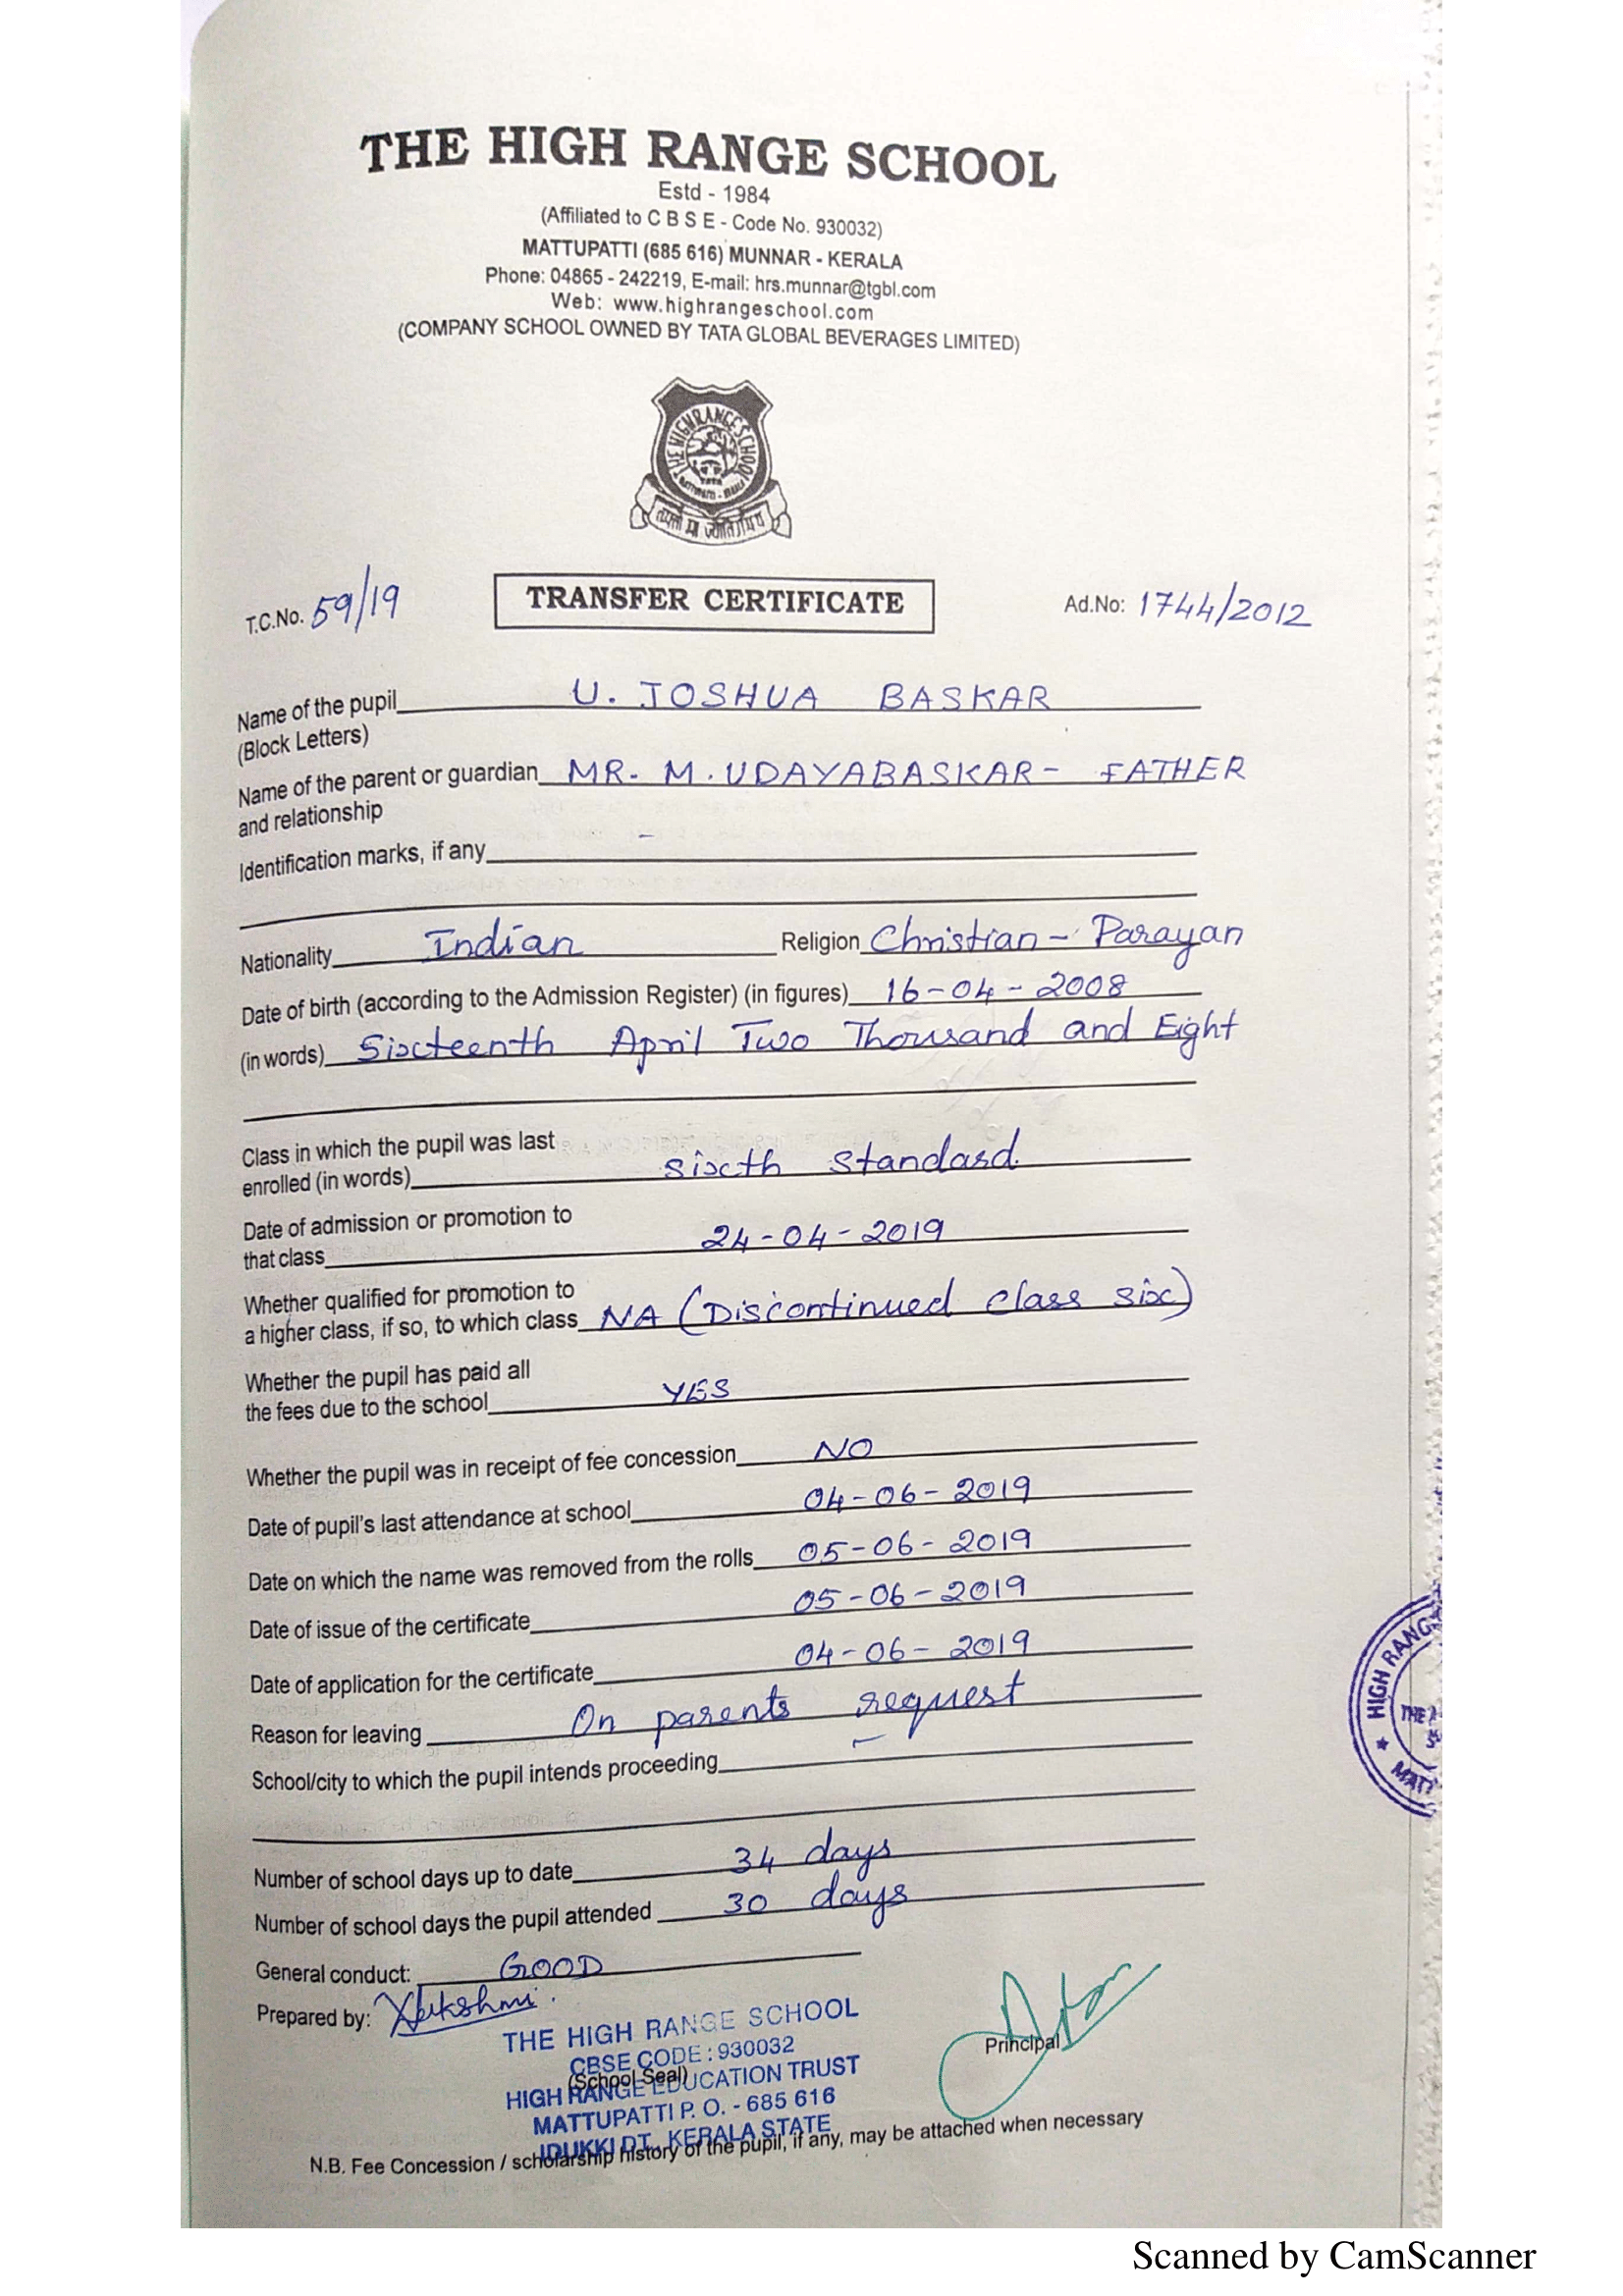 THE HIGH RANGE SCHOOL
Estd - 1984
(Affiliated to C B S E - Code No. 930032)
MATTUPATTI (685 616) MUNNAR - KERALA
Phone: 04865 - 242219, E-mail: hrs.munnar@tgbl.com
Web: www.highrangeschool.com
(COMPANY SCHOOL OWNED BY TATA GLOBAL BEVERAGES LIMITED)
THE HIGH RANGE SCHOOL
TATA
T.C.No. 59/19
TRANSFER CERTIFICATE
Ad.No: 1744/2012
Name of the pupil U. JOSHUA BASKAR
(Block Letters)
Name of the parent or guardian MR. M. UDAYABASKAR - FATHER
and relationship
Identification marks, if any -
Nationality Indian Religion Christian - Parayan
Date of birth (according to the Admission Register) (in figures) 16-04-2008
(in words) Sixteenth April Two Thousand and Eight
Class in which the pupil was last
enrolled (in words) Sixth Standard
Date of admission or promotion to
that class 24-04-2019
Whether qualified for promotion to
a higher class, if so, to which class NA (Discontinued class six)
Whether the pupil has paid all
the fees due to the school YES
Whether the pupil was in receipt of fee concession NO
Date of pupil's last attendance at school 04-06-2019
Date on which the name was removed from the rolls 05-06-2019
Date of issue of the certificate 05-06-2019
Date of application for the certificate 04-06-2019
Reason for leaving On parents request
School/city to which the pupil intends proceeding -
HIGH RANG
THE
MATT
Number of school days up to date 34 days
Number of school days the pupil attended 30 days
General conduct: GOOD
Prepared by:
THE HIGH RANGE SCHOOL
CBSE CODE : 930032
(School Seal)
HIGH RANGE EDUCATION TRUST
MATTUPATTI P. O. - 685 616
IDUKKI DT., KERALA STATE
Principal
N.B. Fee Concession / scholarship history of the pupil, if any, may be attached when necessary
Scanned by CamScanner